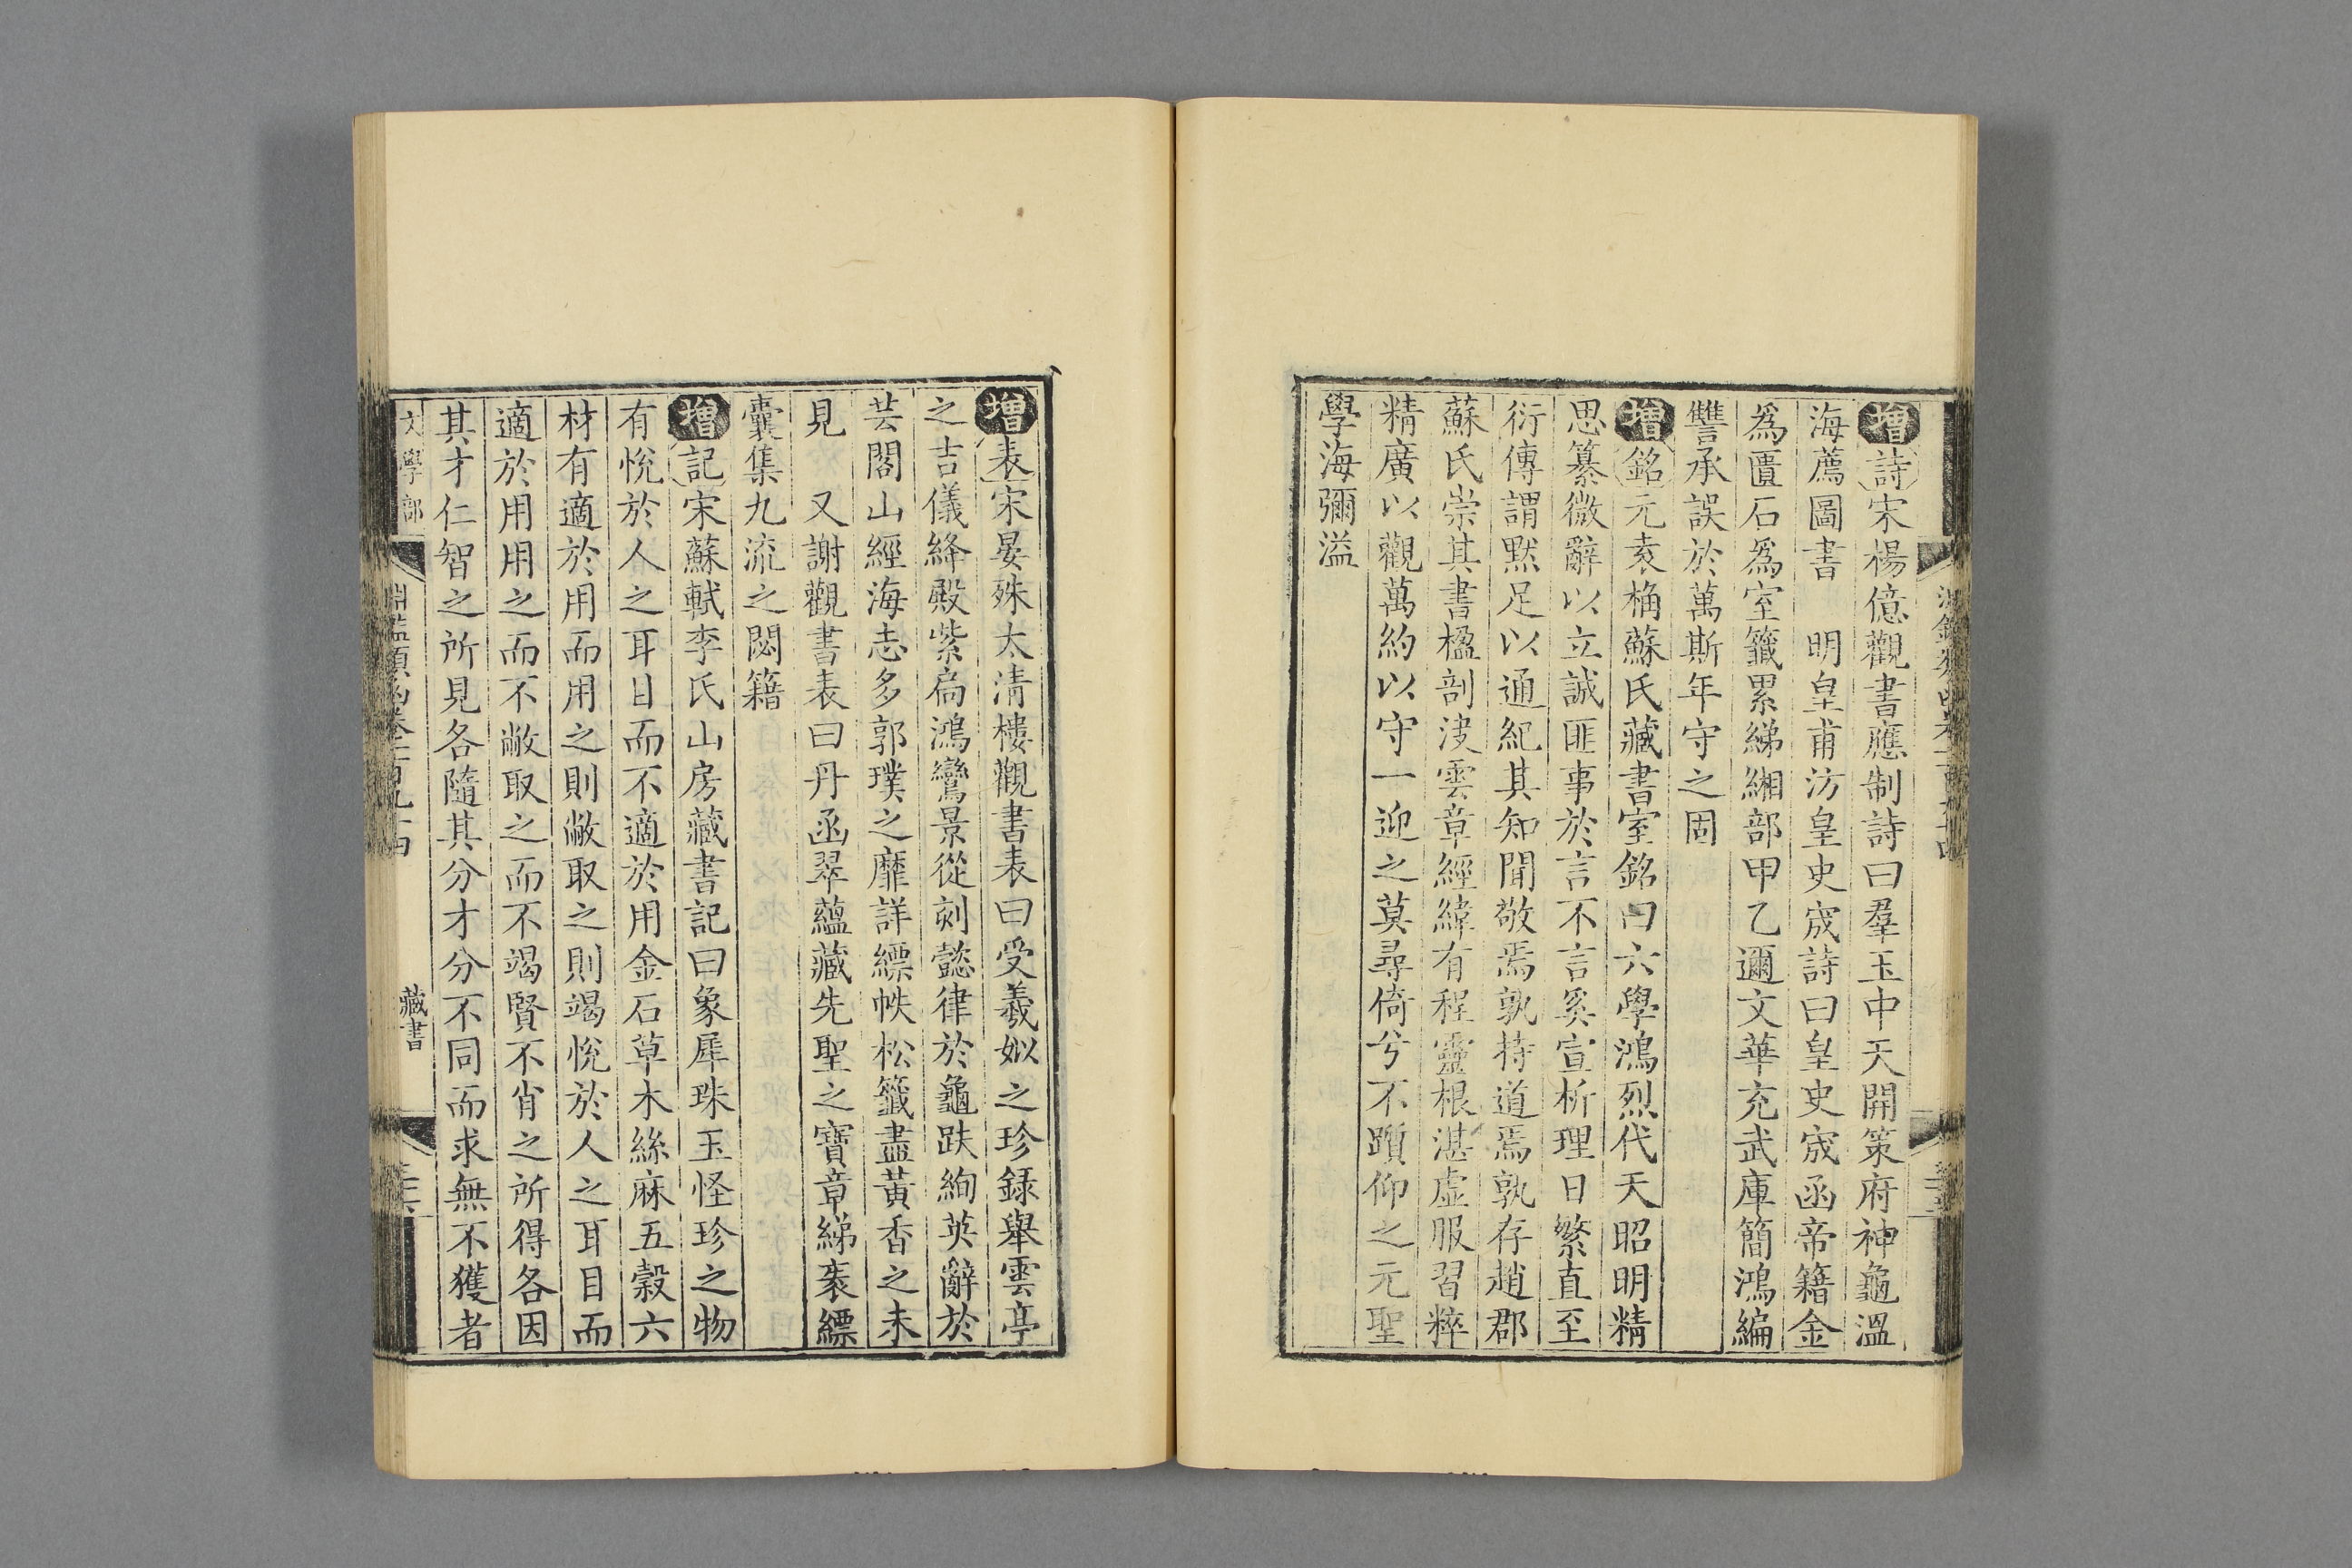 增詩宋楊億觀書應制詩曰羣玉中天開策府神龜溫
海薦圖書　明皇甫汸皇史宬詩曰皇史宬函帝籍金
爲匱石爲室籤累綈緗部甲乙邇文華充武庫簡鴻編
讐承誤於萬斯年守之固
增銘元袁桷蘇氏藏書室銘曰六學鴻烈代天昭明精
思纂微辭以立誠匪事於言不言奚宣析理日繁直至
衍傳謂默足以通紀其知聞敬焉孰持道焉孰存趙郡
蘇氏崇其書楹剖淩雲章經緯有程靈根湛虛服習粹
精廣以觀萬約以守一迎之莫尋倚兮不躓仰之元聖
學海彌溢
增表宋晏殊太清樓觀書表曰受羲姒之珍錄舉雲亭
之吉儀絳殿紫扃鴻鸞景從刻懿律於龜趺絢英辭於
芸閣山經海志多郭璞之靡詳縹帙松籤盡黃香之未
見　又謝觀書表曰丹函翠蘊藏先聖之寶章綈袠縹
囊集九流之閟籍
增記宋蘇軾李氏山房藏書記曰象犀珠玉怪珍之物
有悅於人之耳目而不適於用金石草木絲麻五穀六
材有適於用而用之則敝取之則竭悅於人之耳目而
適於用用之而不敝取之而不竭賢不肖之所得各因
其才仁智之所見各隨其分才分不同而求無不獲者
文學部　淵鑑類函卷一百九十四　藏書